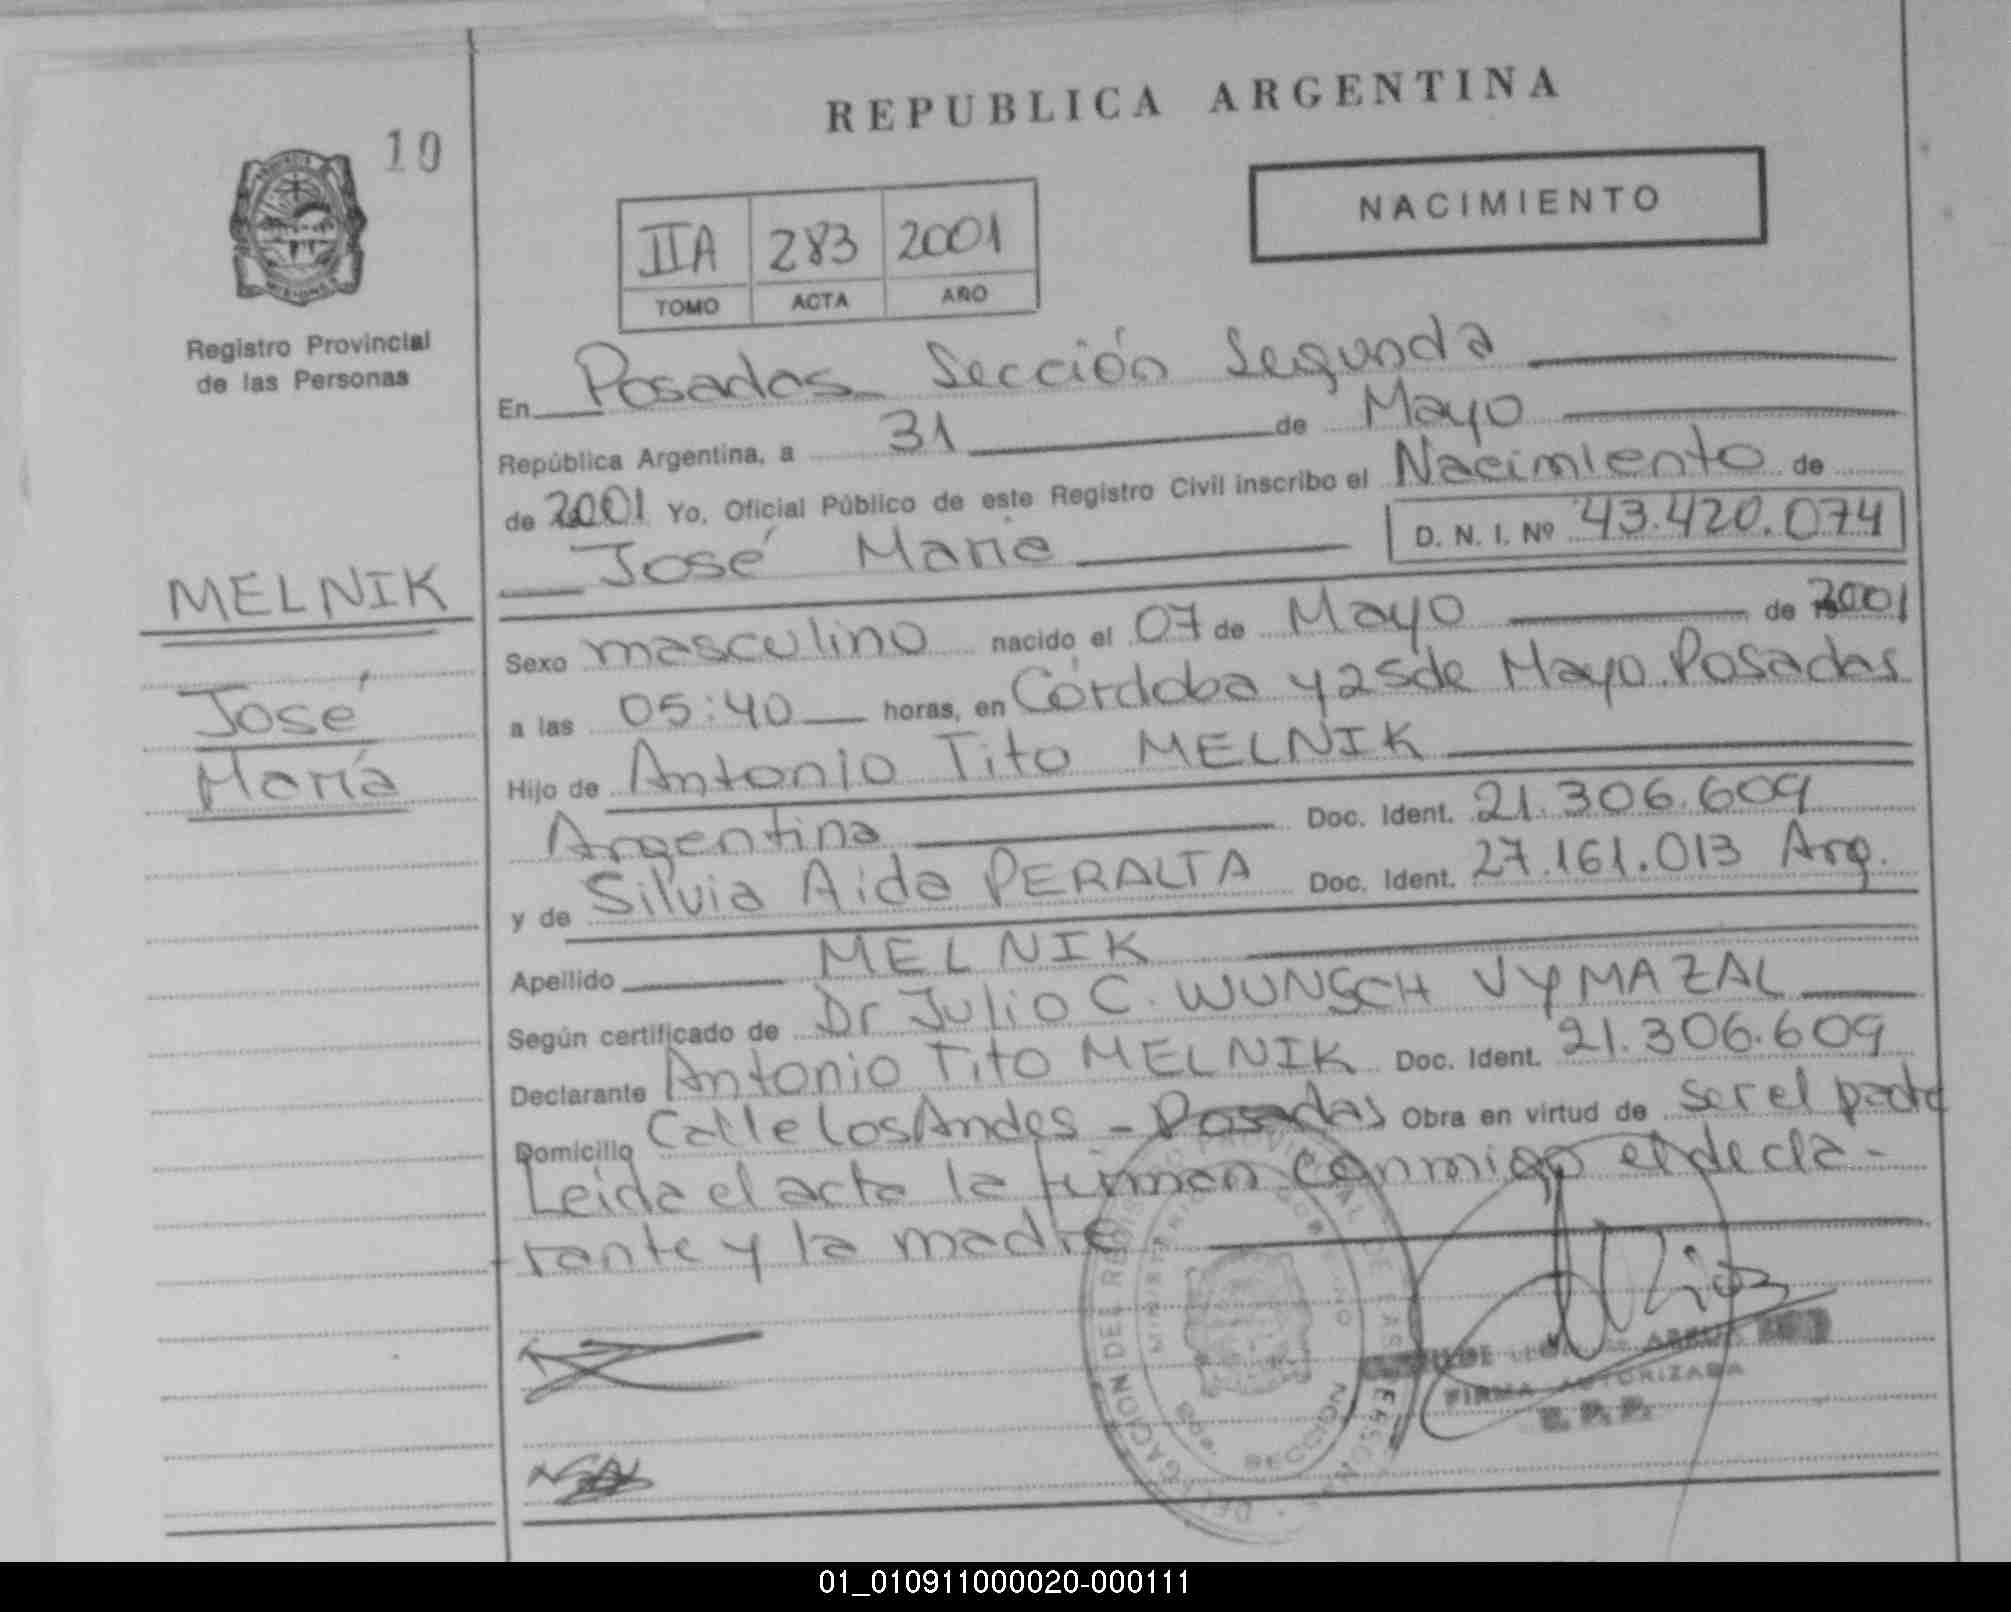 REPUBLICA ARGENTINA
10
NACIMIENTO
IIA 283 2001
TOMO ACTA AÑO
Registro Provincial
de las Personas
En Posadas Sección Segunda
República Argentina, a 31 de Mayo
de 2001 Yo, Oficial Público de este Registro Civil inscribo el Nacimiento de
José María D. N. I. Nº 43.420.074
MELNIK
José
María
Sexo masculino nacido el 07 de Mayo de 2001
a las 05:40 horas, en Córdoba y 25 de Mayo Posadas
Hijo de Antonio Tito MELNIK
Argentina Doc. Ident. 21.306.609
y de Silvia Aida PERALTA Doc. Ident. 27.161.013 Arg.
Apellido MELNIK
Según certificado de Dr Julio C. WUNSCH VYMAZAL
Declarante Antonio Tito MELNIK Doc. Ident. 21.306.609
Domicilio Calle Los Andes - Posadas Obra en virtud de ser el padre
Leida el acta la firman conmigo el decla-
rante y la madre
DELEGACION DEL REGISTRO PROVINCIAL DE LAS PERSONAS
MINISTERIO DE GOBIERNO
SECCION
FIRMA AUTORIZADA
R. P. P.
01_010911000020-000111